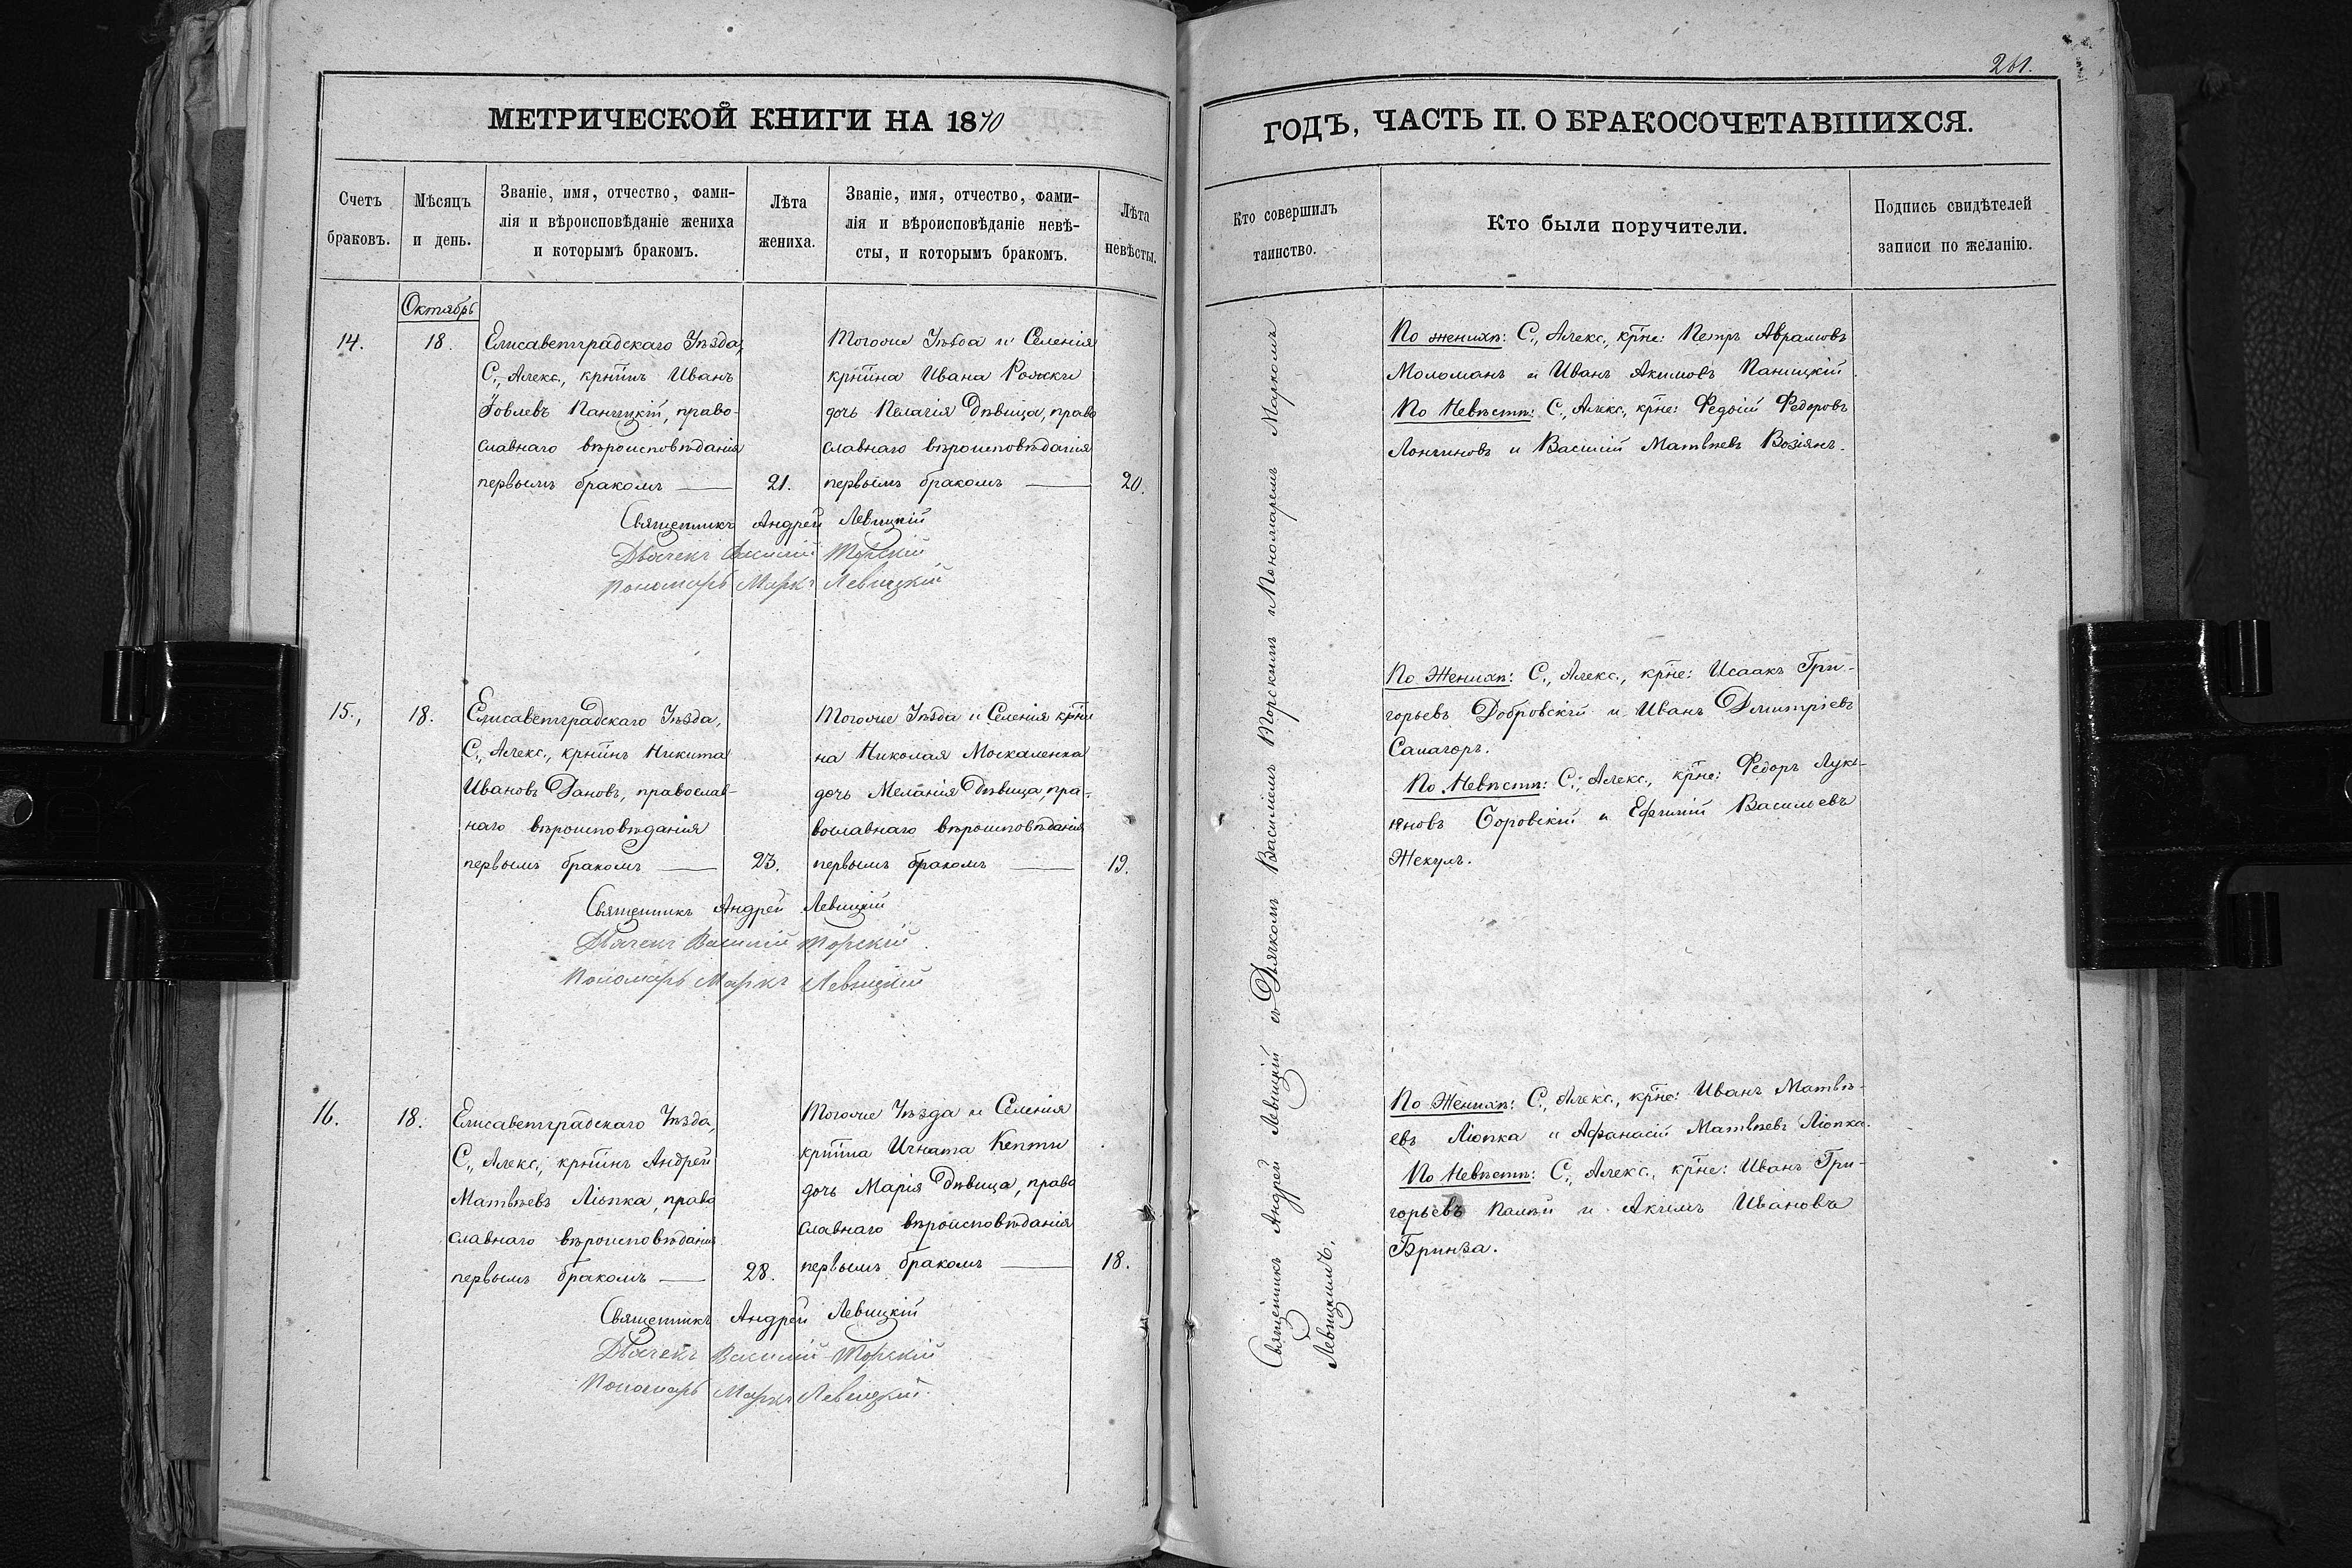 261.
МЕТРИЧЕСКОЙ КНИГИ НА 1870
ГОДЪ, ЧАСТЬ II. О БРАКОСОЧЕТАВШИХСЯ.
Счетъ
браковъ.
Мѣсяцъ
и день.
Званіе, имя, отчество, фами-
лія и вѣроисповѣданіе жениха
и которымъ бракомъ.
Лѣта
жениха.
Званіе, имя, отчество, фами-
лія и вѣроисповѣданіе невѣ-
сты, и которымъ бракомъ.
Лѣта
невѣсты.
Кто совершилъ
таинство.
Кто были поручители.
Подпись свидѣтелей
записи по желанію.
Октябрь
14.
18.
Елисаветградскаго Уѣзда,
С., Алекс., крнинъ Иванъ
Іовлевъ Паницкій, право-
славнаго вѣроисповѣданія
первымъ бракомъ
21.
Тогоже Уѣзда и Селенія
крнина Ивана Рожки
дочь Пелагія Дѣвица, право
славнаго вѣроисповѣданія
первымъ бракомъ
20.
Священникъ Андрей Левицкій
Дьячекъ Василій Торскій
Пономарь Маркъ Левицкій
По женихѣ: С., Алекс., крне: Петръ Авраамовъ
Моломанъ и Иванъ Акимовъ Паницкій
По Невѣстѣ: С., Алекс., крне: Федосій Федоровъ
Лончиновъ и Василій Матвѣевъ Возіянъ.
15.,
18.
Елисаветградскаго Уѣзда,
С., Алекс., крнинъ Никита
Ивановъ Дановъ, православ-
наго вѣроисповѣданія
первымъ бракомъ
23.
Тогоже Уѣзда и Селенія крни
на Николая Москаленка
дочь Меланія Дѣвица, пра-
вославнаго вѣроисповѣданія
первымъ бракомъ
19.
Священникъ Андрей Левицкій
Дьячекъ Василій Торскій
Пономарь Маркъ Левицкій
По Женихѣ: С., Алекс., крне: Исаакъ Гри-
горьевъ Добровскій и Иванъ Дмитріевъ
Сапагоръ.
По Невѣстѣ: С., Алекс., крне: Федоръ Лукь-
яновъ Боровскій и Ефимій Васильевъ
Жекулъ.
16.
18.
Елисаветградскаго Уѣзда,
С., Алекс., крнинъ Андрей
Матвѣевъ Ліопка, право
славнаго вѣроисповѣданія
первымъ бракомъ
28.
Тогоже Уѣзда и Селенія
крнина Игната Кепти
дочь Марія Дѣвица, право
славнаго вѣроисповѣданія
первымъ бракомъ
18.
Священникъ Андрей Левицкій
Дьячекъ Василій Торскій
Пономарь Маркъ Левицкій
По Женихѣ: С., Алекс., крне: Иванъ Матвѣ-
евъ Ліопка и Афанасій Матвѣевъ Ліопка.
По Невѣстѣ: С., Алекс., крне: Иванъ Гри-
горьевъ Палій и Акимъ Ивановъ
Бринза.
Священникъ Андрей Левицкій съ Дьячкомъ Василіемъ Торскимъ и Пономаремъ Маркомъ
Левицкимъ.